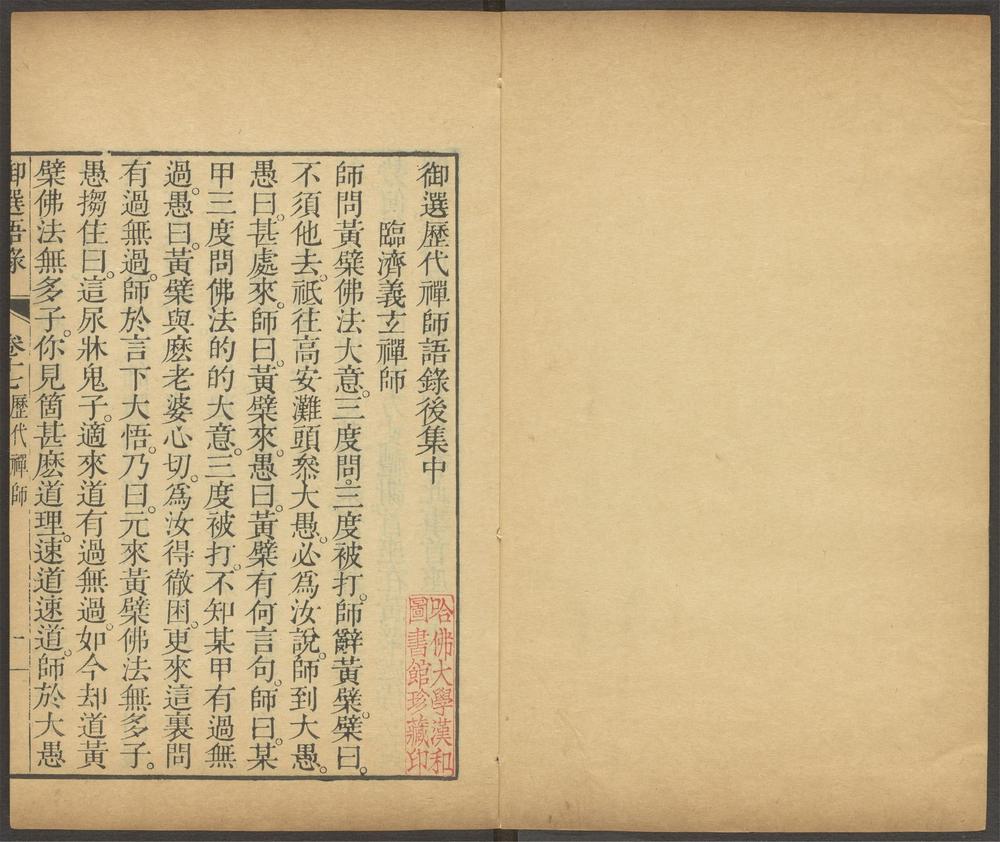 御選歷代禪師語錄後集中
臨濟義玄禪師
師問黃檗佛法大意。三度問。三度被打。師辭黃檗。檗曰。
不須他去。祗往高安灘頭叅大愚。必爲汝說。師到大愚。
愚曰。甚處來。師曰。黃檗來。愚曰。黃檗有何言句。師曰。某
甲三度問佛法的的大意。三度被打。不知某甲有過無
過。愚曰。黃檗與麽老婆心切。爲汝得徹困。更來這裏問
有過無過。師於言下大悟。乃曰。元來黃檗佛法無多子。
愚搊住曰。這尿牀鬼子。適來道有過無過。如今却道黃
檗佛法無多子。你見箇甚麽道理。速道速道。師於大愚
御選語錄
歷代禪師
一
哈佛大學漢和
圖書館珍藏印